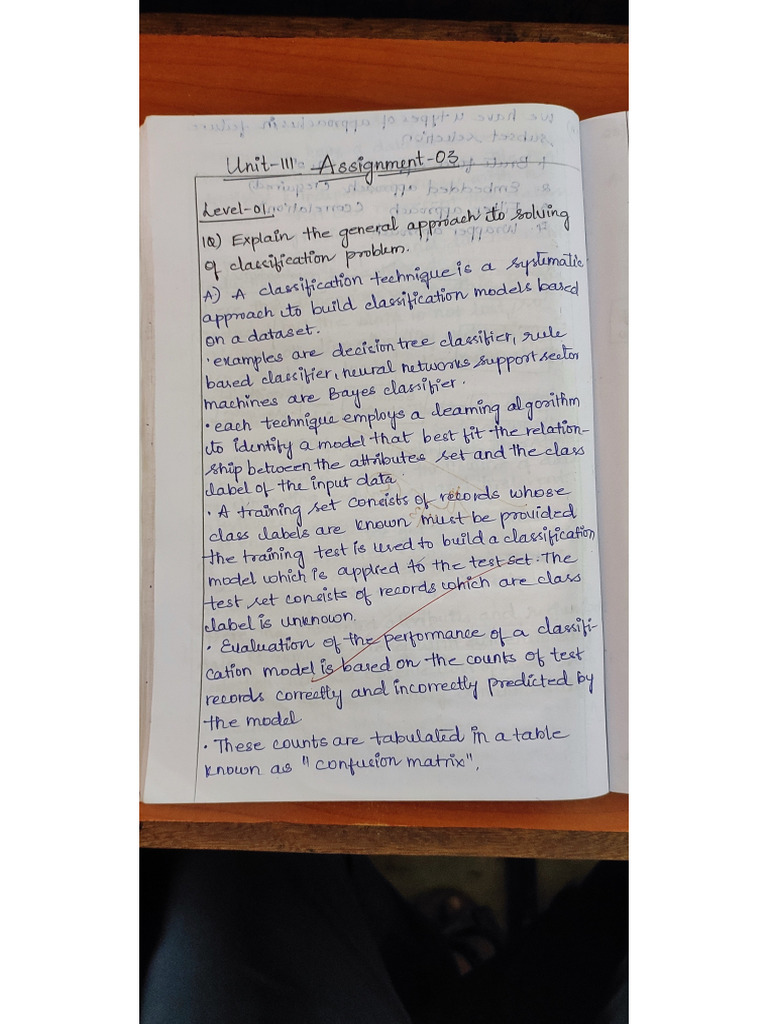 Unit-III Assignment-03
Level-01.
1Q) Explain the general approach to solving
of classification problem.
A) A classification technique is a systematic
approach to build classification models based
on a dataset.
• examples are decision tree classifier, rule
based classifier, neural networks support sector
machines are Bayes classifier.
• each technique employs a learning algorithm
to identify a model that best fit the relation-
ship between the attributes set and the class
label of the input data.
• A training set consists of records whose
class labels are known must be provided
the training test is used to build a classification
model which is applied to the test set. The
test set consists of records which are class
label is unknown.
• Evaluation of the performance of a classifi-
cation model is based on the counts of test
records correctly and incorrectly predicted by
the model
• These counts are tabulated in a table
known as "confusion matrix".